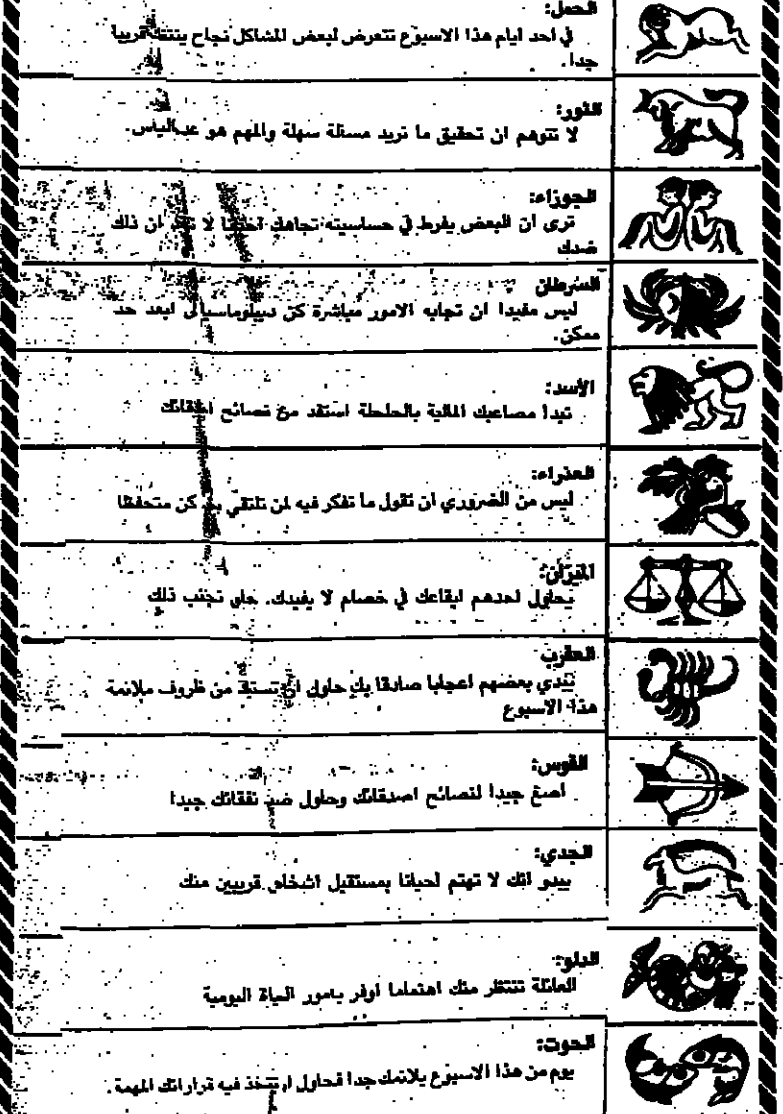 الحمل:
في احد ايام هذا الاسبوع تتعرض لبعض المشاكل نجاح ينتظرك قريبا
جدا.
الثور:
لا تتوهم ان تحقيق ما تريد مسئلة سهلة والمهم هو عدم الياس.
الجوزاء:
ترى ان البعض يفرط في حساسيته تجاهك احيانا لا ان ذلك
ضدك
السرطان
ليس مفيدا ان تجابه الامور مباشرة كن ديبلوماسيا الى ابعد حد
ممكن.
الأسد:
تبدا مصاعبك المالية بالحلحلة استفد من نصائح اصدقائك
العذراء:
ليس من الضروري ان تقول ما تفكر فيه لمن تلتقي به كن متحفظا
الميزان:
يحاول احدهم ايقاعك في خصام لا يفيدك. حاول تجنب ذلك
العقرب
يبدي بعضهم اعجابا صادقا بك حاول ان تستفيد من ظروف ملائمة
هذا الاسبوع
القوس:
اصغ جيدا لنصائح اصدقائك وحاول ضبط نفقاتك جيدا
الجدي:
يبدو انك لا تهتم احيانا بمستقبل اشخاص قريبين منك
الدلو:
العائلة تنتظر منك اهتماما اوفر بامور الحياة اليومية
الحوت:
يوم من هذا الاسبوع يلائمك جدا فحاول ان تتخذ فيه قراراتك المهمة.